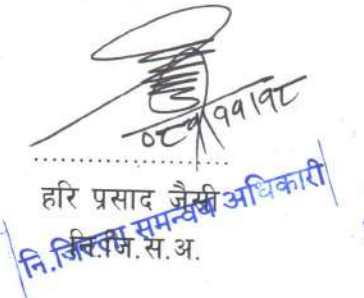 ०८१।११।१८
..............................
हरि प्रसाद जैसी
नि.जि.स.अ.
नि.जिल्ला समन्वय अधिकारी